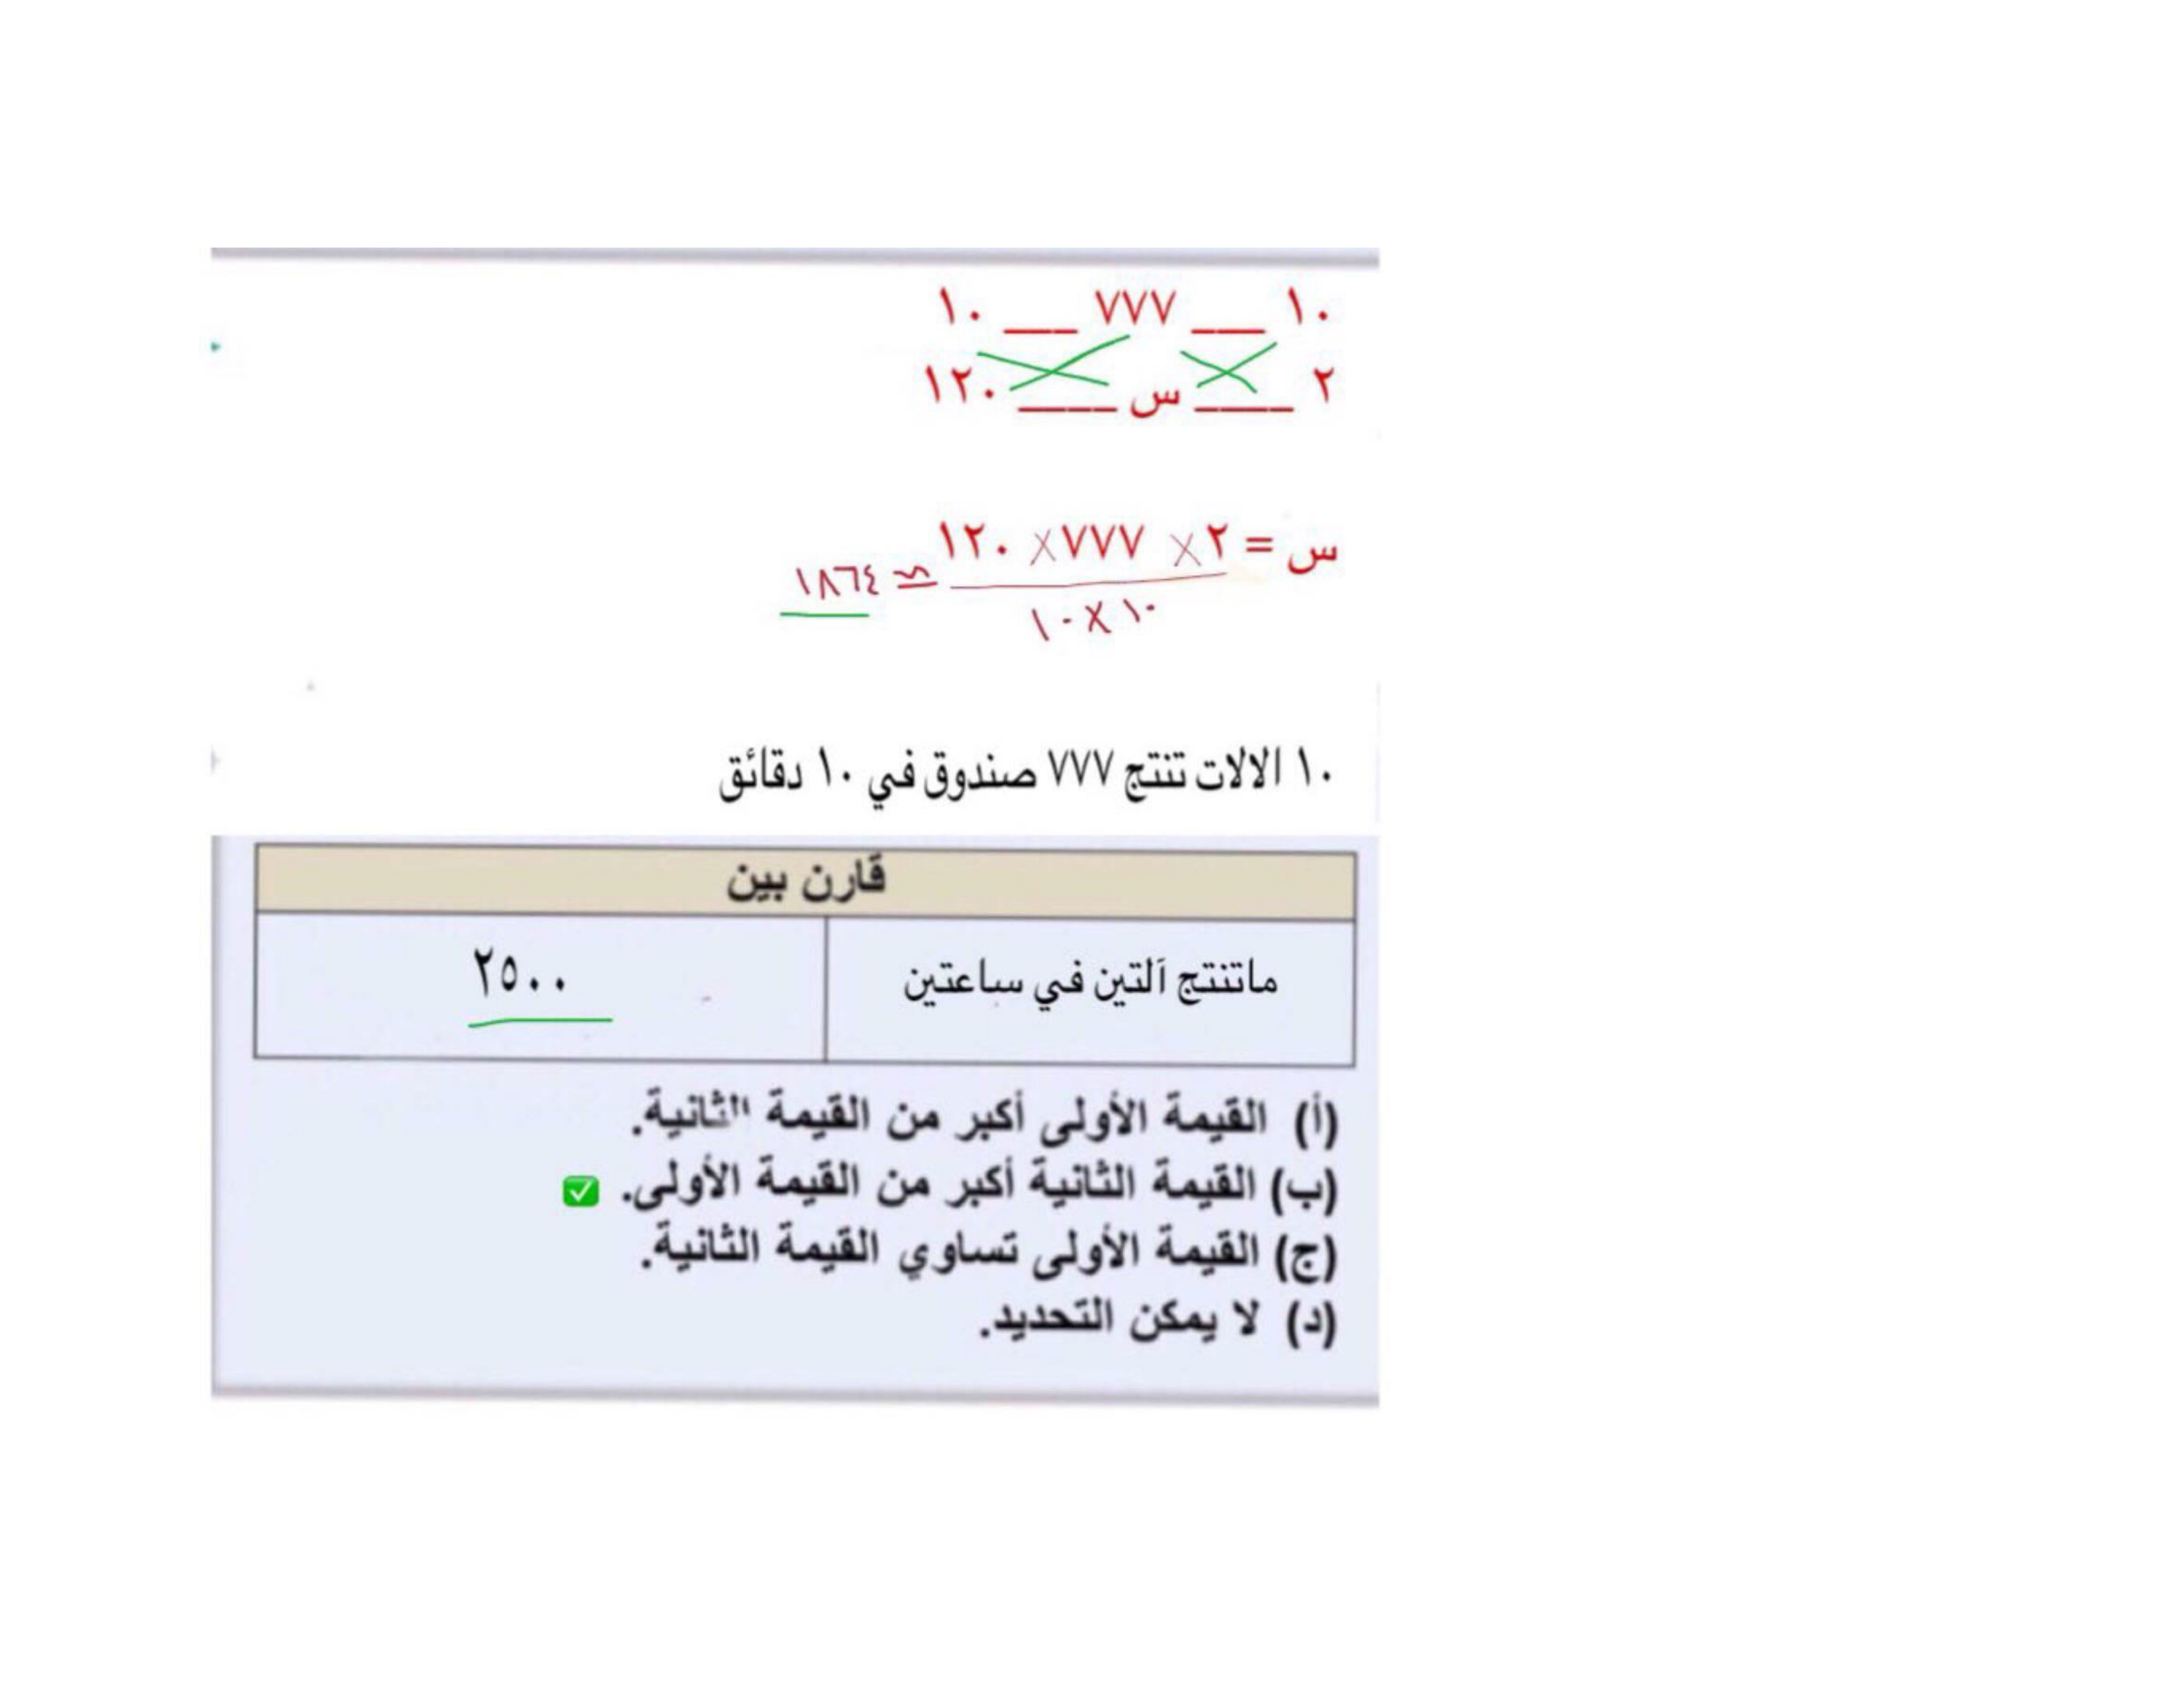 ١٠ ___ ٧٧٧ ___ ١٠
٢ ____ س ____ ١٢٠
س = ٢ × ٧٧٧ × ١٢٠
١٠ × ١٠
≃ ١٨٦٤
١٠ الالات تنتج ٧٧٧ صندوق في ١٠ دقائق
قارن بين
ماتنتج آلتين في ساعتين
٢٥٠٠
(أ) القيمة الأولى أكبر من القيمة الثانية.
(ب) القيمة الثانية أكبر من القيمة الأولى. ✅
(ج) القيمة الأولى تساوي القيمة الثانية.
(د) لا يمكن التحديد.